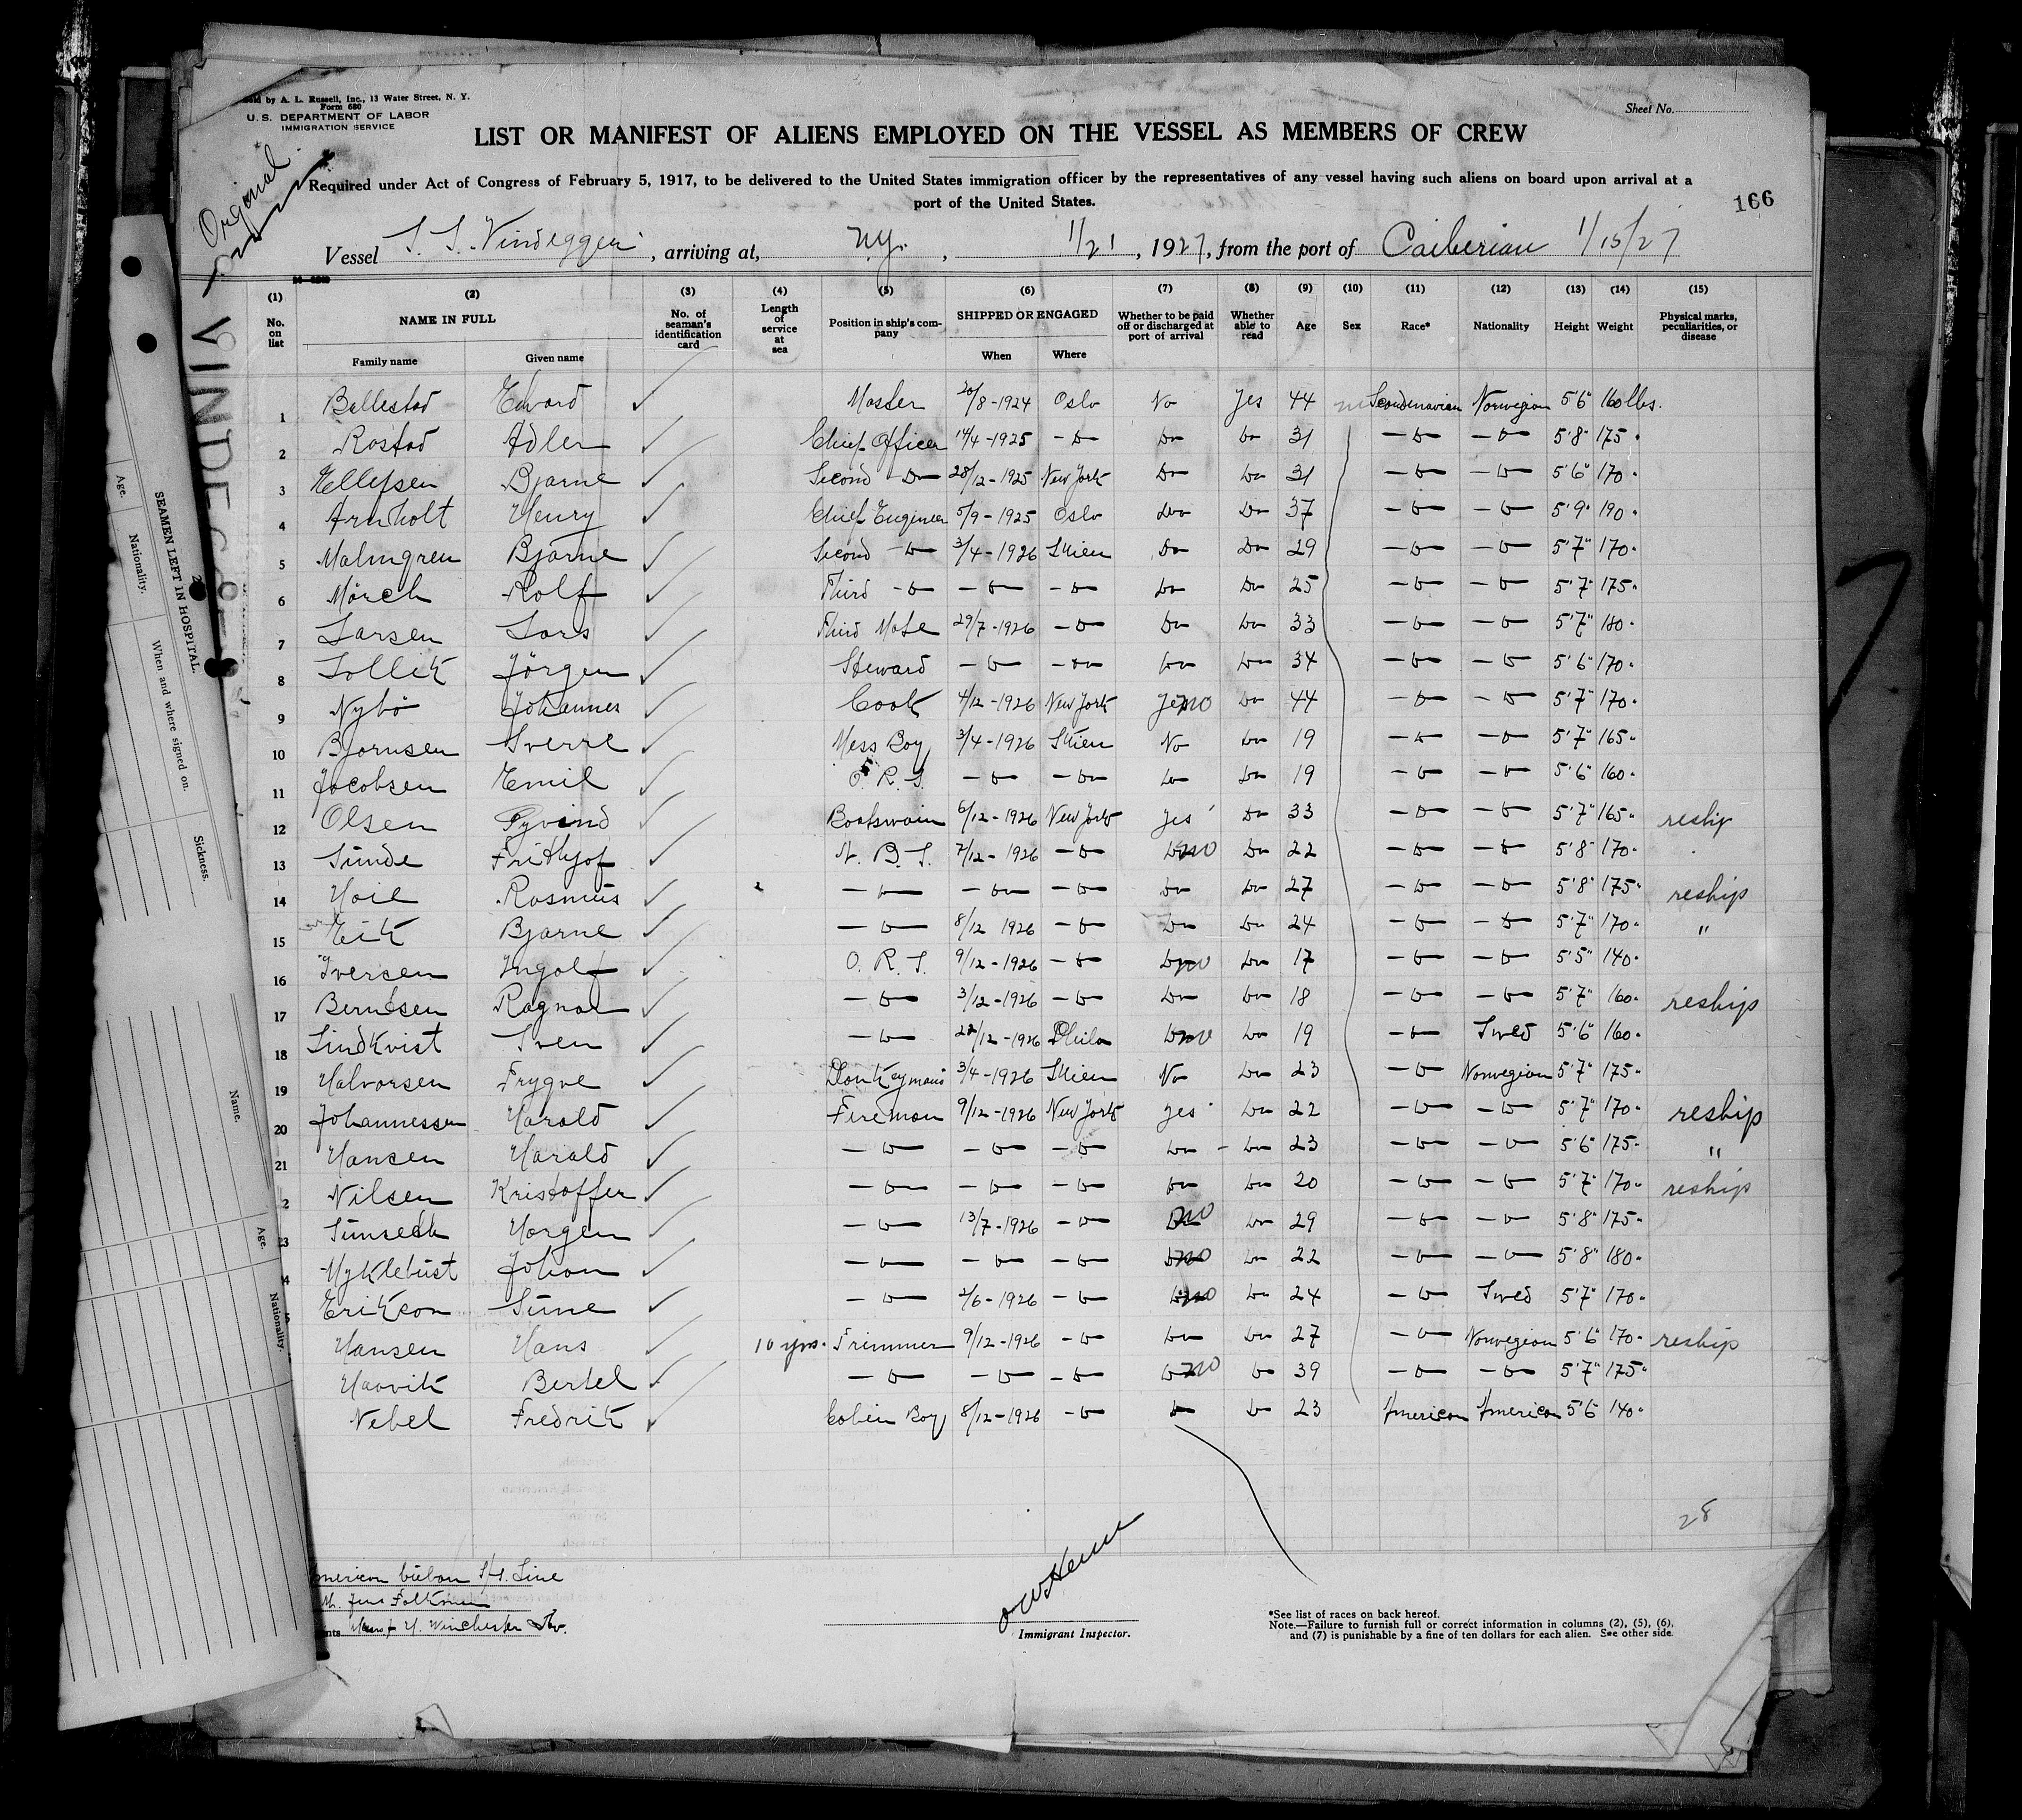 Sold by A. L. Russell, Inc., 13 Water Street, N. Y.
Form 680
U. S. DEPARTMENT OF LABOR
IMMIGRATION SERVICE
Sheet No.
LIST OR MANIFEST OF ALIENS EMPLOYED ON THE VESSEL AS MEMBERS OF CREW
Required under Act of Congress of February 5, 1917, to be delivered to the United States immigration officer by the representatives of any vessel having such aliens on board upon arrival at a
port of the United States.
166
Original
Vessel S. S. Vindeggen, arriving at, N.Y., 1/21, 1927, from the port of Caiberian 1/15/27
(1) (2) (3) (4) (5) (6) (7) (8) (9) (10) (11) (12) (13) (14) (15)
No. on list NAME IN FULL No. of seaman's identification card Length of service at sea Position in ship's company SHIPPED OR ENGAGED Whether to be paid off or discharged at port of arrival Whether able to read Age Sex Race* Nationality Height Weight Physical marks, peculiarities, or disease
Family name Given name When Where
1 Bellestad Edvard ✓ Master 20/8-1924 Oslo No Yes 44 m Scandenavian Norwegian 5'6" 160 lbs.
2 Rostad Adler ✓ Chief Officer 14/4-1925 -o- Do Do 31 -o- -o- 5'8" 175 "
3 Ellefsen Bjarne ✓ Second -Do- 28/12-1925 New York Do Do 31 -o- -o- 5'6" 170 "
4 Arnholt Henry ✓ Chief Engineer 5/9-1925 Oslo Do Do 37 -o- -o- 5'9" 190 "
5 Malmgren Bjarne ✓ Second -o- 3/4-1926 Skien Do Do 29 -o- -o- 5'7" 170 "
6 Mörch Rolf ✓ Third -o- -o- -o- Do Do 25 -o- -o- 5'7" 175 "
7 Larsen Lars ✓ Third Mate 29/7-1926 -o- Do Do 33 -o- -o- 5'7" 180 "
8 Sollik Jörgen ✓ Steward -o- -o- Do Do 34 -o- -o- 5'6" 170 "
9 Nybö Johannes ✓ Cook 4/12-1926 New York Yes no Do 44 -o- -o- 5'7" 170 "
10 Bjornsen Sverre ✓ Mess Boy 3/4-1926 Skien No Do 19 -o- -o- 5'7" 165 "
11 Jacobsen Emil ✓ O. R. S. -o- -o- Do Do 19 -o- -o- 5'6" 160 "
12 Olsen Öyvind ✓ Boatswain 6/12-1926 New York Yes Do 33 -o- -o- 5'7" 165 " reship
13 Sunde Frithjof ✓ A. B. S. 7/12-1926 -o- Do no Do 22 -o- -o- 5'8" 170 "
14 Hoie Rasmus ✓ -o- -o- -o- Do Do 27 -o- -o- 5'8" 175 " reship
15 Eik Bjarne ✓ -o- 8/12 1926 -o- Do Do 24 -o- -o- 5'7" 170 " "
16 Iversen Ingolf ✓ O. R. S. 9/12-1926 -o- Do no Do 17 -o- -o- 5'5" 140 "
17 Berntsen Ragnar ✓ -o- 3/12-1926 -o- Do Do 18 -o- -o- 5'7" 160 " reship
18 Lindkvist Sven ✓ -o- 22/12-1926 Phila Do no Do 19 -o- Swed 5'6" 160 "
19 Halvorsen Trygve ✓ Donkeyman 3/4-1926 Skien No Do 23 -o- Norwegian 5'7" 175 "
20 Johannessen Harald ✓ Fireman 9/12-1926 New York Yes Do 22 -o- -o- 5'7" 170 " reship
21 Hansen Harald ✓ -o- -o- -o- Do Do 23 -o- -o- 5'6" 175 " "
2 Nilsen Kristoffer ✓ -o- -o- -o- Do Do 20 -o- -o- 5'7" 170 " reship
23 Horgen ✓ -o- 13/7-1926 -o- Do no Do 29 -o- -o- 5'8" 175 "
4 Myklebust Johan ✓ -o- -o- -o- Do no Do 22 -o- -o- 5'8" 180 "
5 Erikson Sune ✓ -o- 2/6-1926 -o- Do no Do 24 -o- Swed 5'7" 170 "
Hansen Hans ✓ 10 yrs. Trimmer 9/12-1926 -o- Do Do 27 -o- Norwegian 5'6" 170 " reship
Haavik Bertel ✓ -o- -o- -o- Do no Do 39 -o- -o- 5'7" 175 "
Nebel Fredrik ✓ Cabin Boy 8/12-1926 -o- Do Do 23 American American 5'6" 140 "
28
American Cuban S/S. Line
Winchester
Immigrant Inspector.
*See list of races on back hereof.
Note.—Failure to furnish full or correct information in columns (2), (5), (6),
and (7) is punishable by a fine of ten dollars for each alien. See other side.
SEAMEN LEFT IN HOSPITAL.
Age. Nationality. When and where signed on. Sickness.
Name. Age. Nationality.